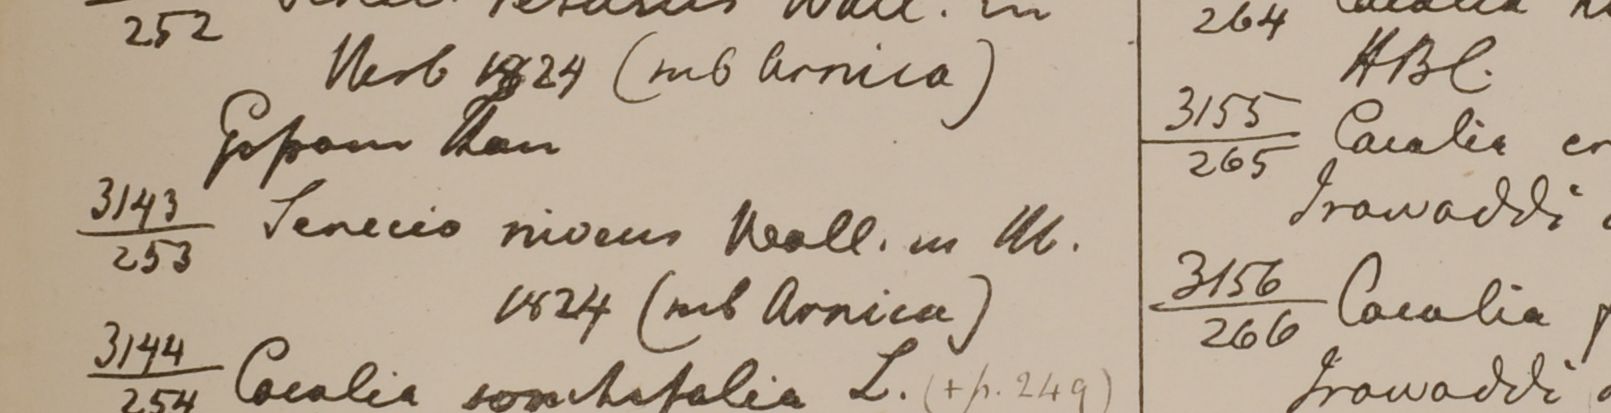 252
Wall. in
Herb 1824 (sub Arnica)
Gossam Than
3143
253 Senecio niveus Wall. in Hb.
1824 (sub Arnica)
3144
254 Cacalia sonchifolia L. (+p. 249)
264 Cacalia
HBC.
3155
265 Cacalia
Irawaddi
3156
266 Cacalia
Irawaddi